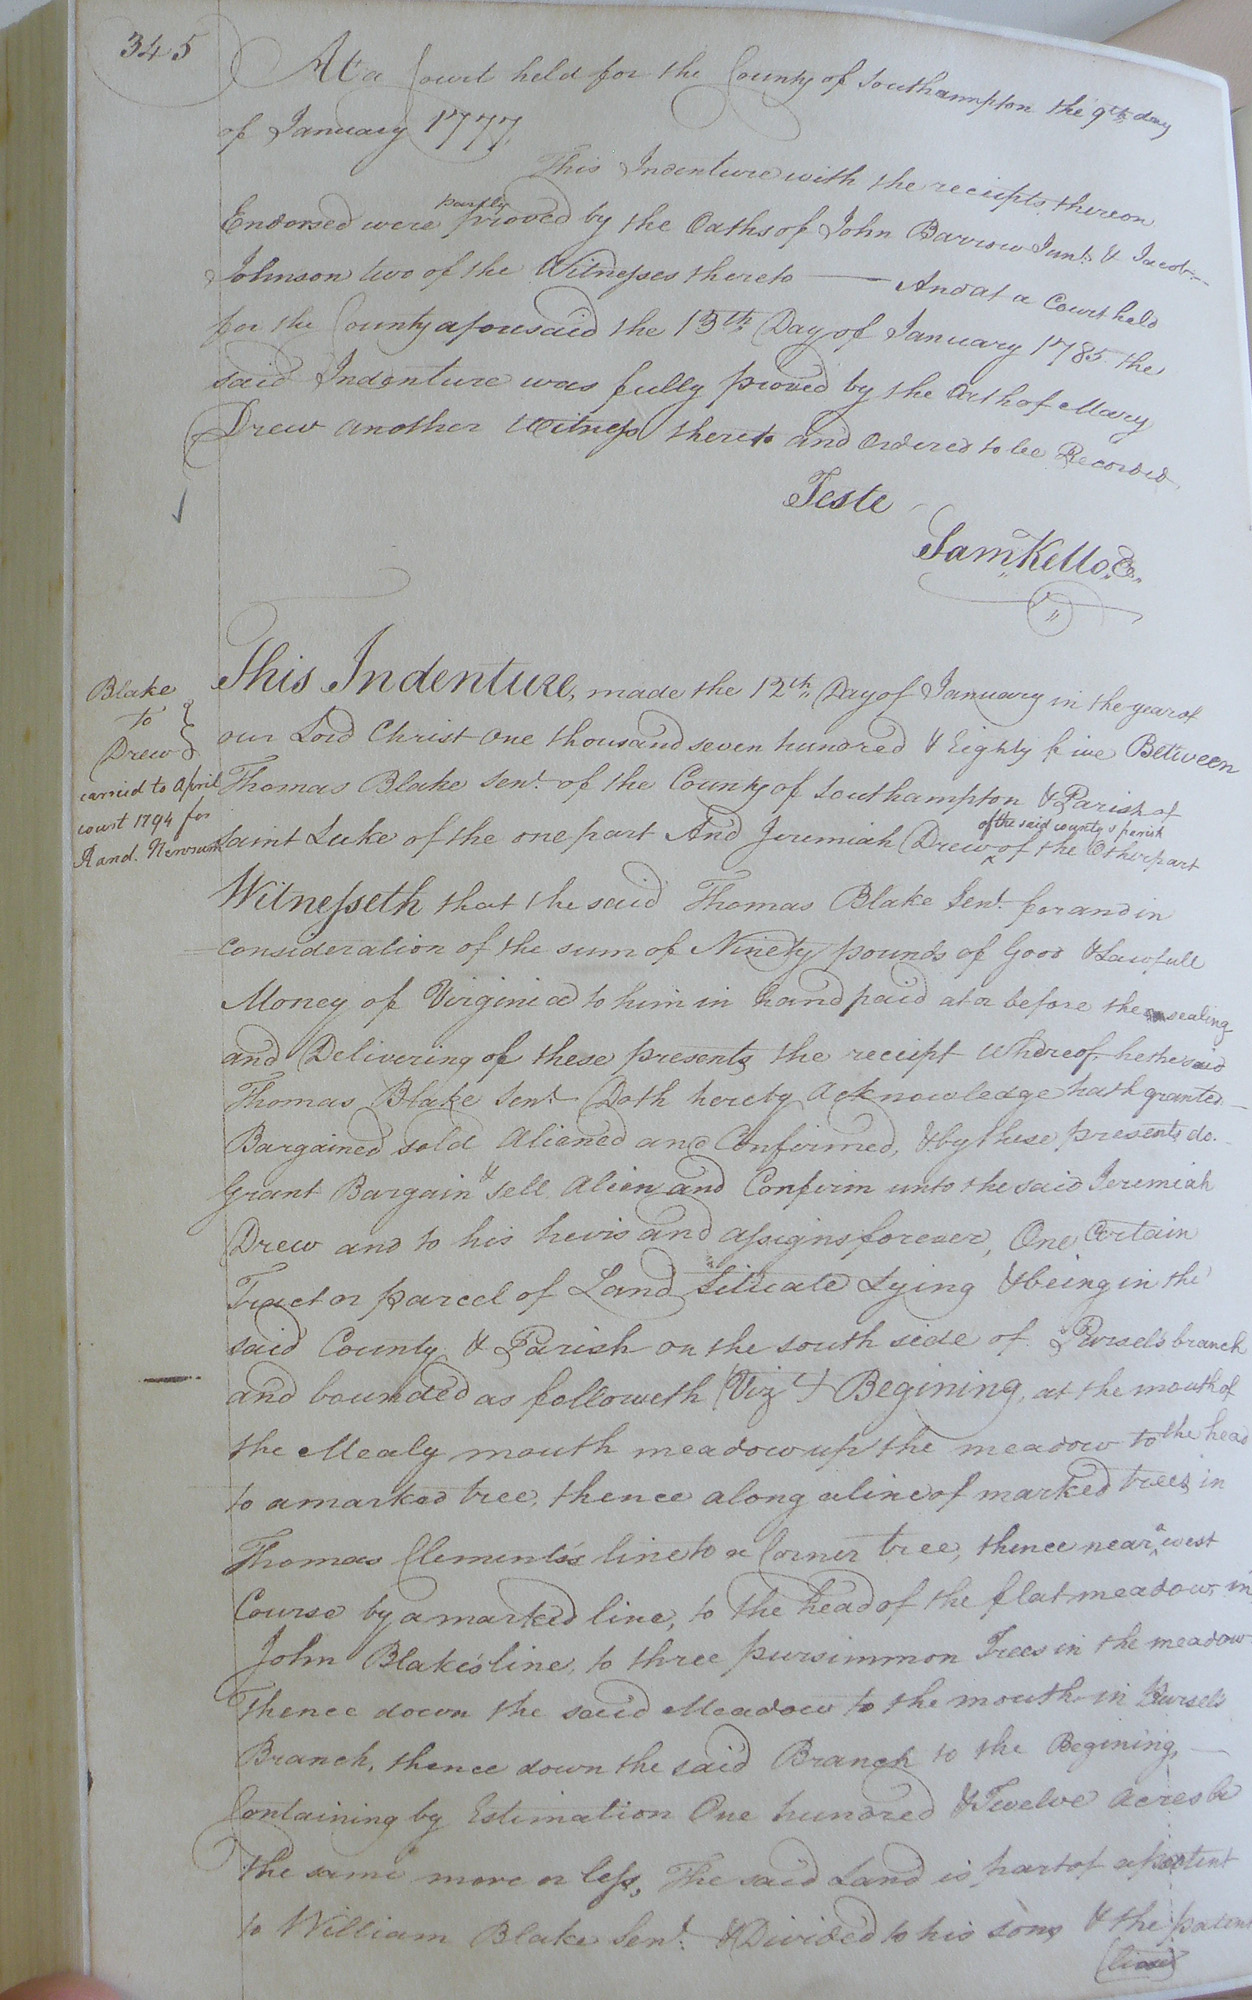 345
At a Court held for the County of Southampton the 9th day
of January 1777,
This Indenture with the reciepts thereon
Endorsed were partly proved by the Oaths of John Barrow Junr. & Jacob
Johnson two of the Witnesses thereto — And at a Court held
for the County aforesaid the 13th Day of January 1785 the
said Indenture was fully proved by the Oath of Mary
Drew another Witness thereto and Ordered to be Recorded
Teste
Sam Kello, C.
Blake
to
Drew
carried to April
court 1794 for
Rand. Newsum
This Indenture, made the 12th Day of January in the year of
our Lord Christ One thousand seven hundred & Eighty five Between
Thomas Blake Senr. of the County of Southampton & Parish of
Saint Luke of the one part And Jeremiah Drew of the said county & parish of the Other part
Witnesseth that the said Thomas Blake Senr. for and in
consideration of the sum of Ninety pounds of Good & Lawfull
Money of Virginia to him in hand paid at or before the sealing
and Delivering of these presents the reciept whereof he the said
Thomas Blake Senr. Doth hereby acknowledge hath granted
Bargained sold Aliened and Confirmed, & by these presents do
Grant Bargain & sell Alien and Confirm unto the said Jeremiah
Drew and to his heirs and assigns forever, One Certain
Tract or parcel of Land Situate Lying & being in the
said County & Parish on the south side of Pursels branch
and bounded as followeth (Viz) Begining, at the mouth of
the Mealy mouth meadow up the meadow to the head
to a marked tree, thence along a line of marked trees in
Thomas Clements's line to a Corner tree, thence near a west
Course by a marked line, to the head of the flat meadow in
John Blake's line, to three pursimmon Trees in the meadow
Thence down the said Meadow to the mouth in Pursels
Branch, thence down the said Branch to the Begining, —
Containing by Estimation One hundred & Twelve acres be
the same more or less, The said Land is part of a patent
to William Blake Senr. & Divided to his sons & the patent
(line)